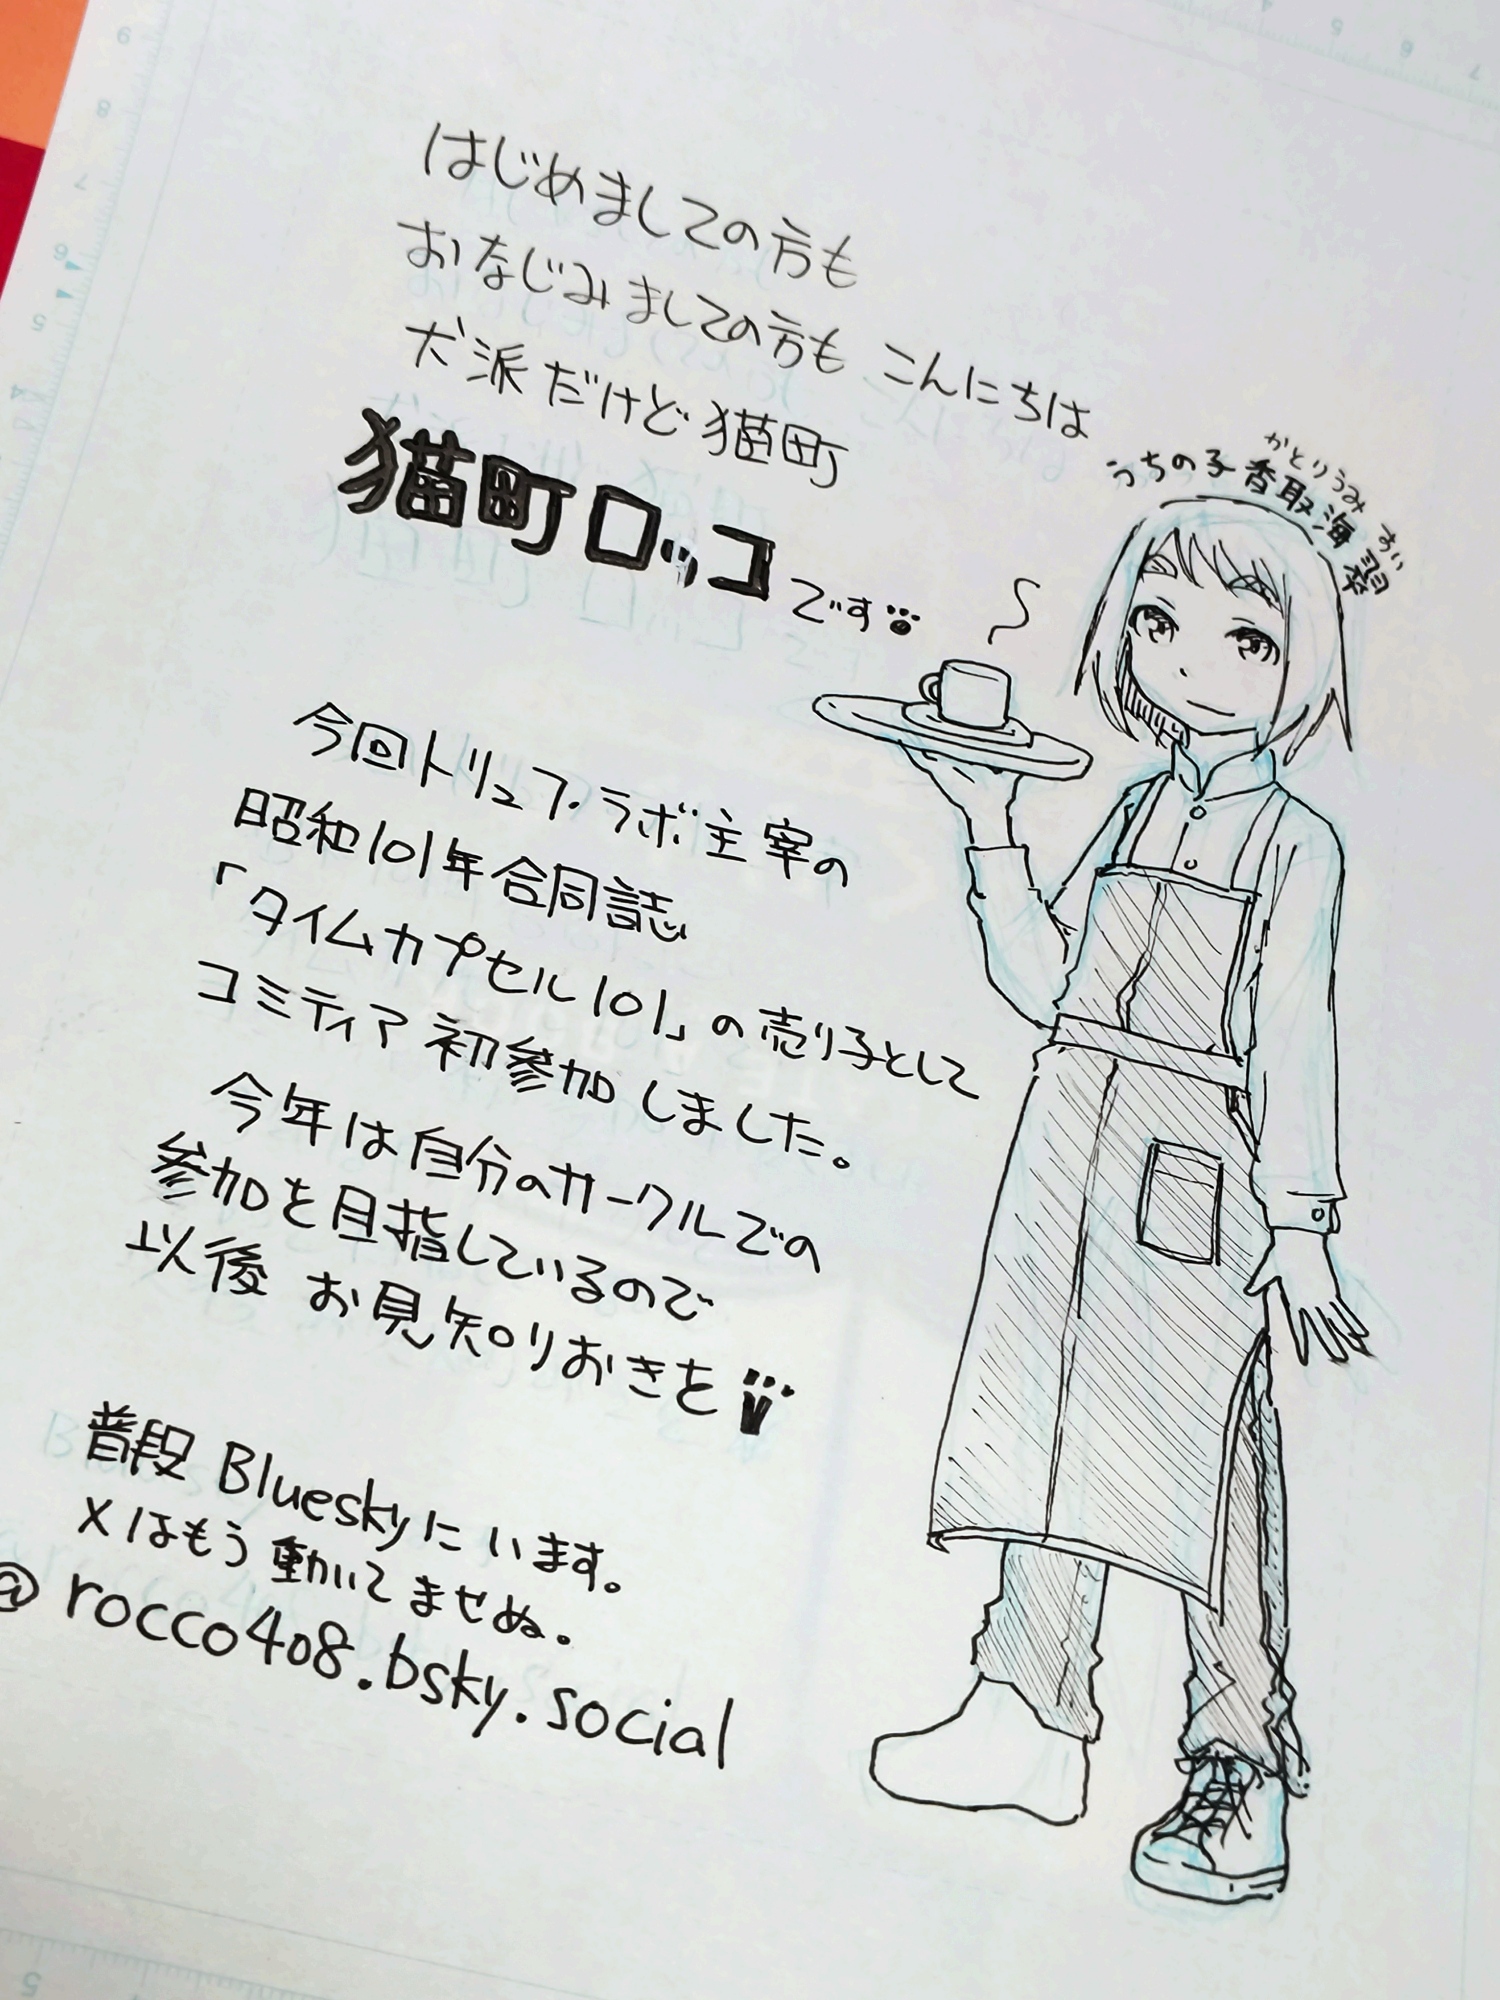 はじめましての方も
おなじみましての方も こんにちは
犬派だけど猫町
猫町ロッコです
うちの子 香取海 翠
かとりうみ すい
今回トリュフ・ラボ主宰の
昭和101年合同誌
「タイムカプセル101」の売り子として
コミティア初参加しました。
今年は自分のサークルでの
参加を目指しているので
以後 お見知りおきを
普段 Blueskyにいます。
Xはもう動いてませぬ。
@rocco408.bsky.social